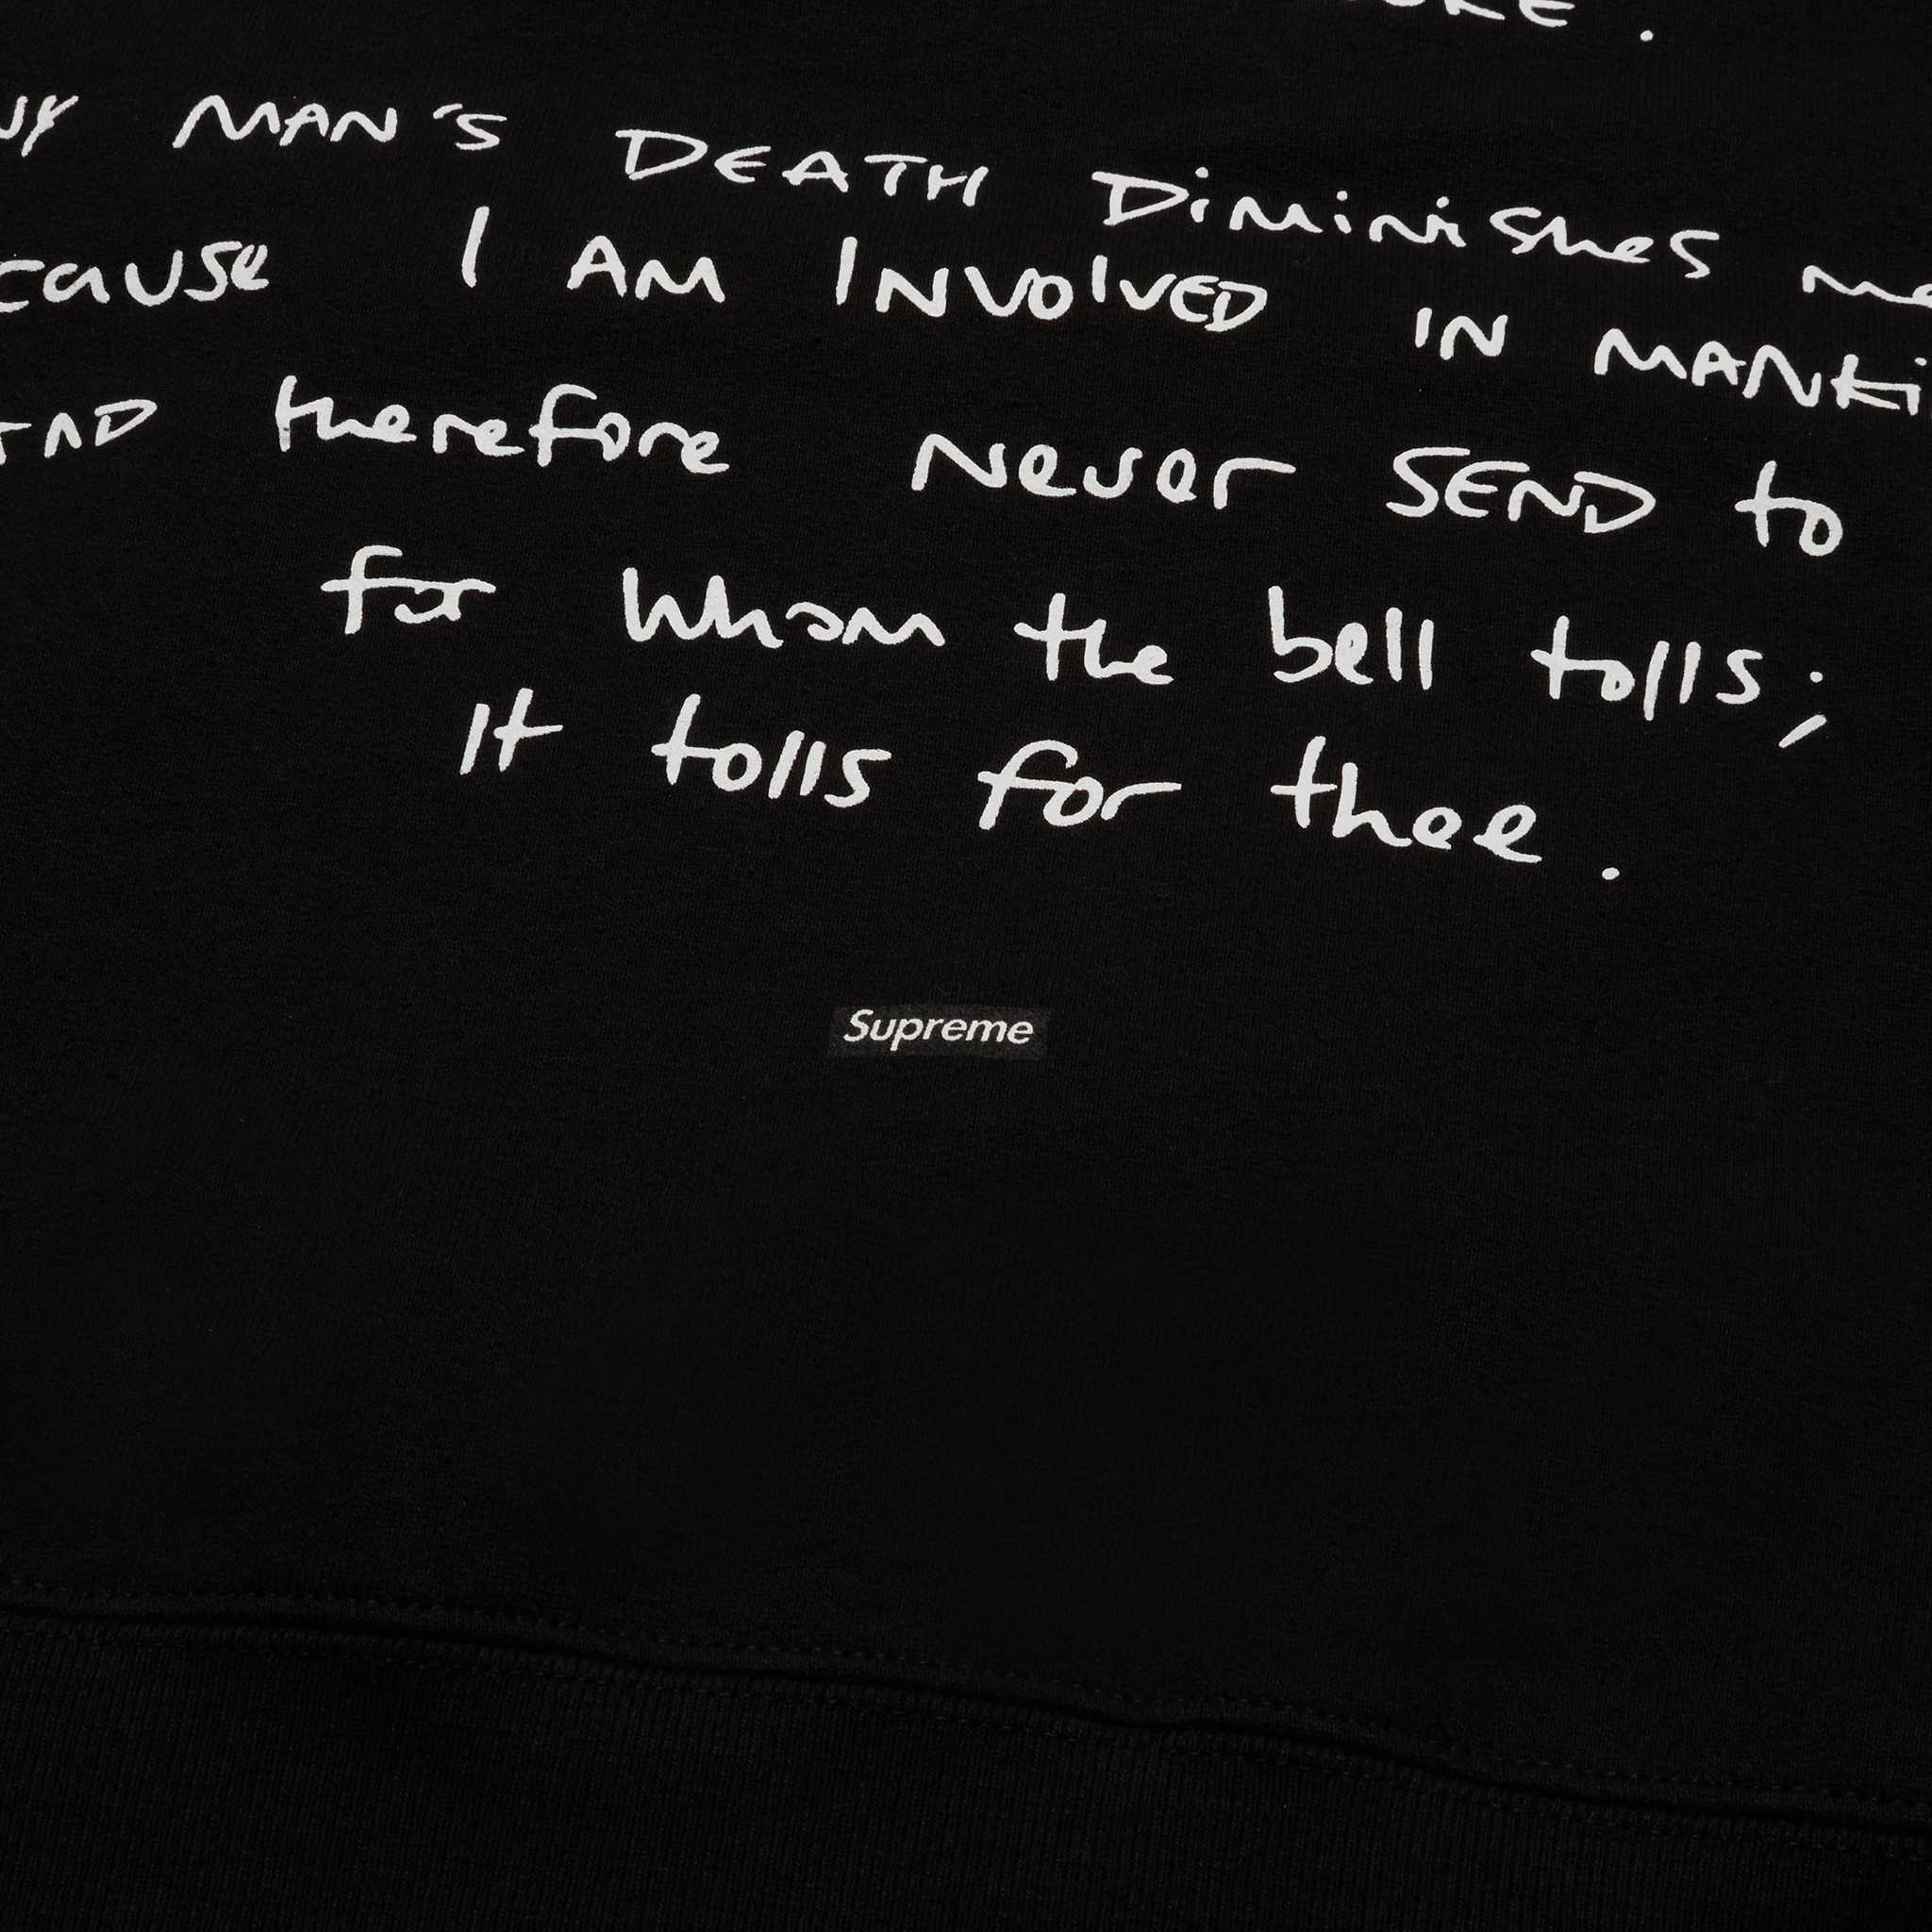 MAN'S DEATH DiMiNiSheS
I AM INVOlVED IN
therefore Never SEND to
for Whom the bell tolls;
It tolls for thee.
Supreme